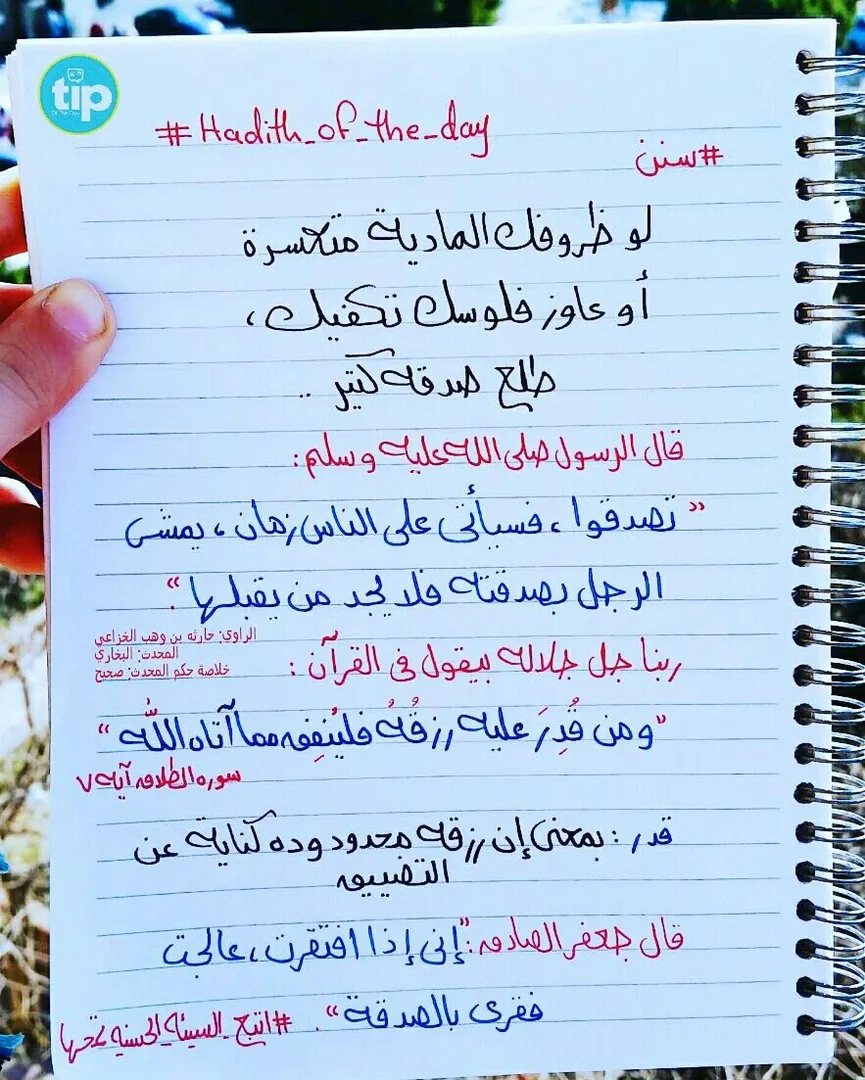 tip
Of The Day
#Hadith_of_the_day
#سنن
لو ظروفك المادية متعسرة
أو عاوز فلوسك تكفيك،
طلع صدقة كتير ..
قال الرسول صلى الله عليه وسلم:
"تصدقوا، فسيأتي على الناس زمان، يمشي
الرجل بصدقته فلا يجد من يقبلها".
الراوي: حارثه بن وهب الخزاعي
المحدث: البخاري
خلاصة حكم المحدث: صحيح
ربنا جل جلاله بيقول في القرآن:
"ومن قُدِرَ عليه رزقُهُ فليُنفِقه مما آتاه اللَّه"
سوره الطلاق آيه ٧
قدر: بمعنى إن رزقه محدود وده كناية عن
التضييق
قال جعفر الصادق: "إني إذا افتقرت، عالجت
فقري بالصدقة".
#اتبع_السيئه_الحسنه_تمحها